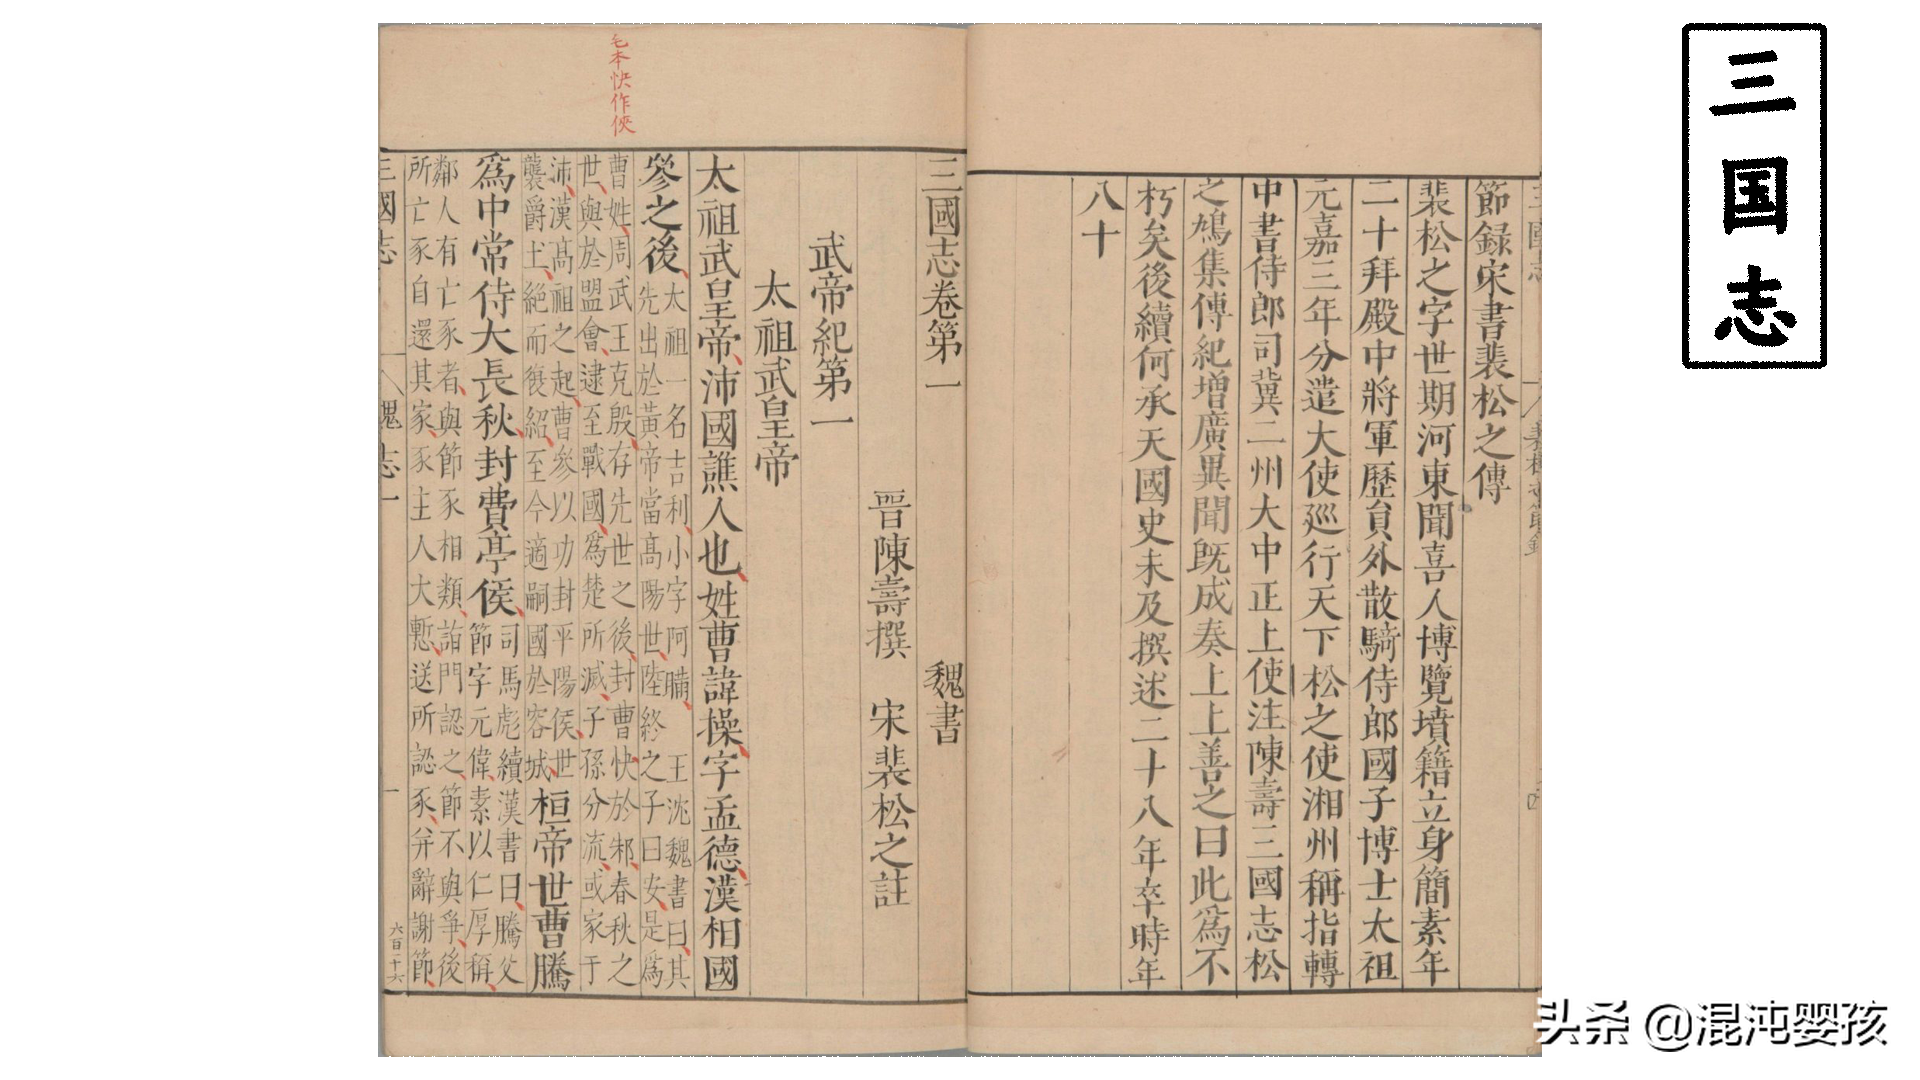 三国志
節録宋書裴松之傳
裴松之字世期河東聞喜人博覽墳籍立身簡素年
二十拜殿中將軍歷員外散騎侍郎國子博士太祖
元嘉三年分遣大使巡行天下松之使湘州稱指轉
中書侍郎司冀二州大中正上使注陳壽三國志松
之鳩集傳紀增廣異聞既成奏上上善之曰此爲不
朽矣後續何承天國史未及撰述二十八年卒時年
八十
三國志卷第一 魏書
晉陳壽撰 宋裴松之註
武帝紀第一
太祖武皇帝
太祖武皇帝沛國譙人也姓曹諱操字孟德漢相國
參之後
太祖一名吉利小字阿瞞 王沈魏書曰其
先出於黃帝當高陽世陸終之子曰安是爲
毛本快作俠
曹姓周武王克殷存先世之後封曹快於邾春秋之
世與於盟會逮至戰國爲楚所滅子孫分流或家于
沛漢高祖之起曹參以功封平陽侯世
襲爵土絕而復紹至今適嗣國於容城
桓帝世曹騰
爲中常侍大長秋封費亭侯
司馬彪續漢書曰騰父
節字元偉素以仁厚稱
鄰人有亡豕者與節豕相類詣門認之節不與爭後
所亡豕自還其家豕主人大慙送所認豕并辭謝節
三國志 魏志一 一 六百十六
头条 @混沌婴孩